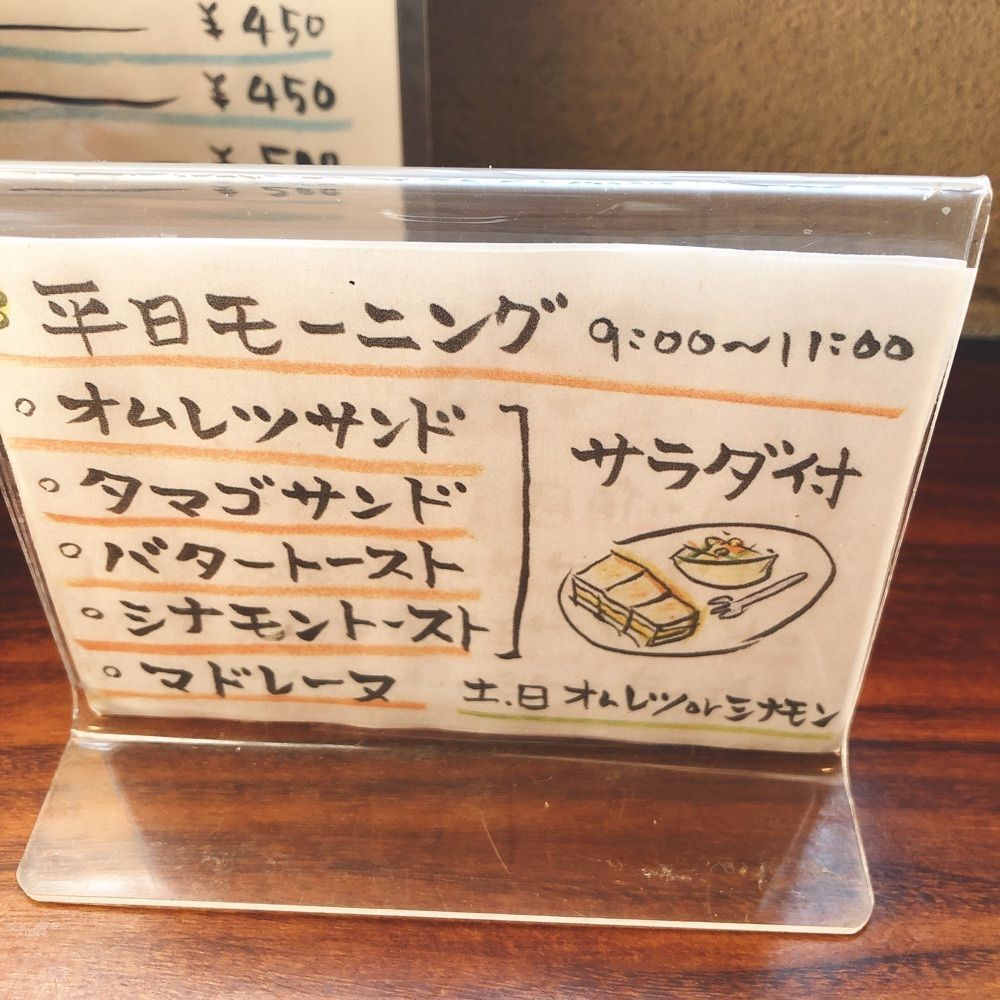 ¥450
¥450
¥500
平日モーニング 9:00~11:00
○オムレツサンド
○タマゴサンド
○バタートースト
○シナモントースト
○マドレーヌ
サラダ付
土.日 オムレツorシナモン